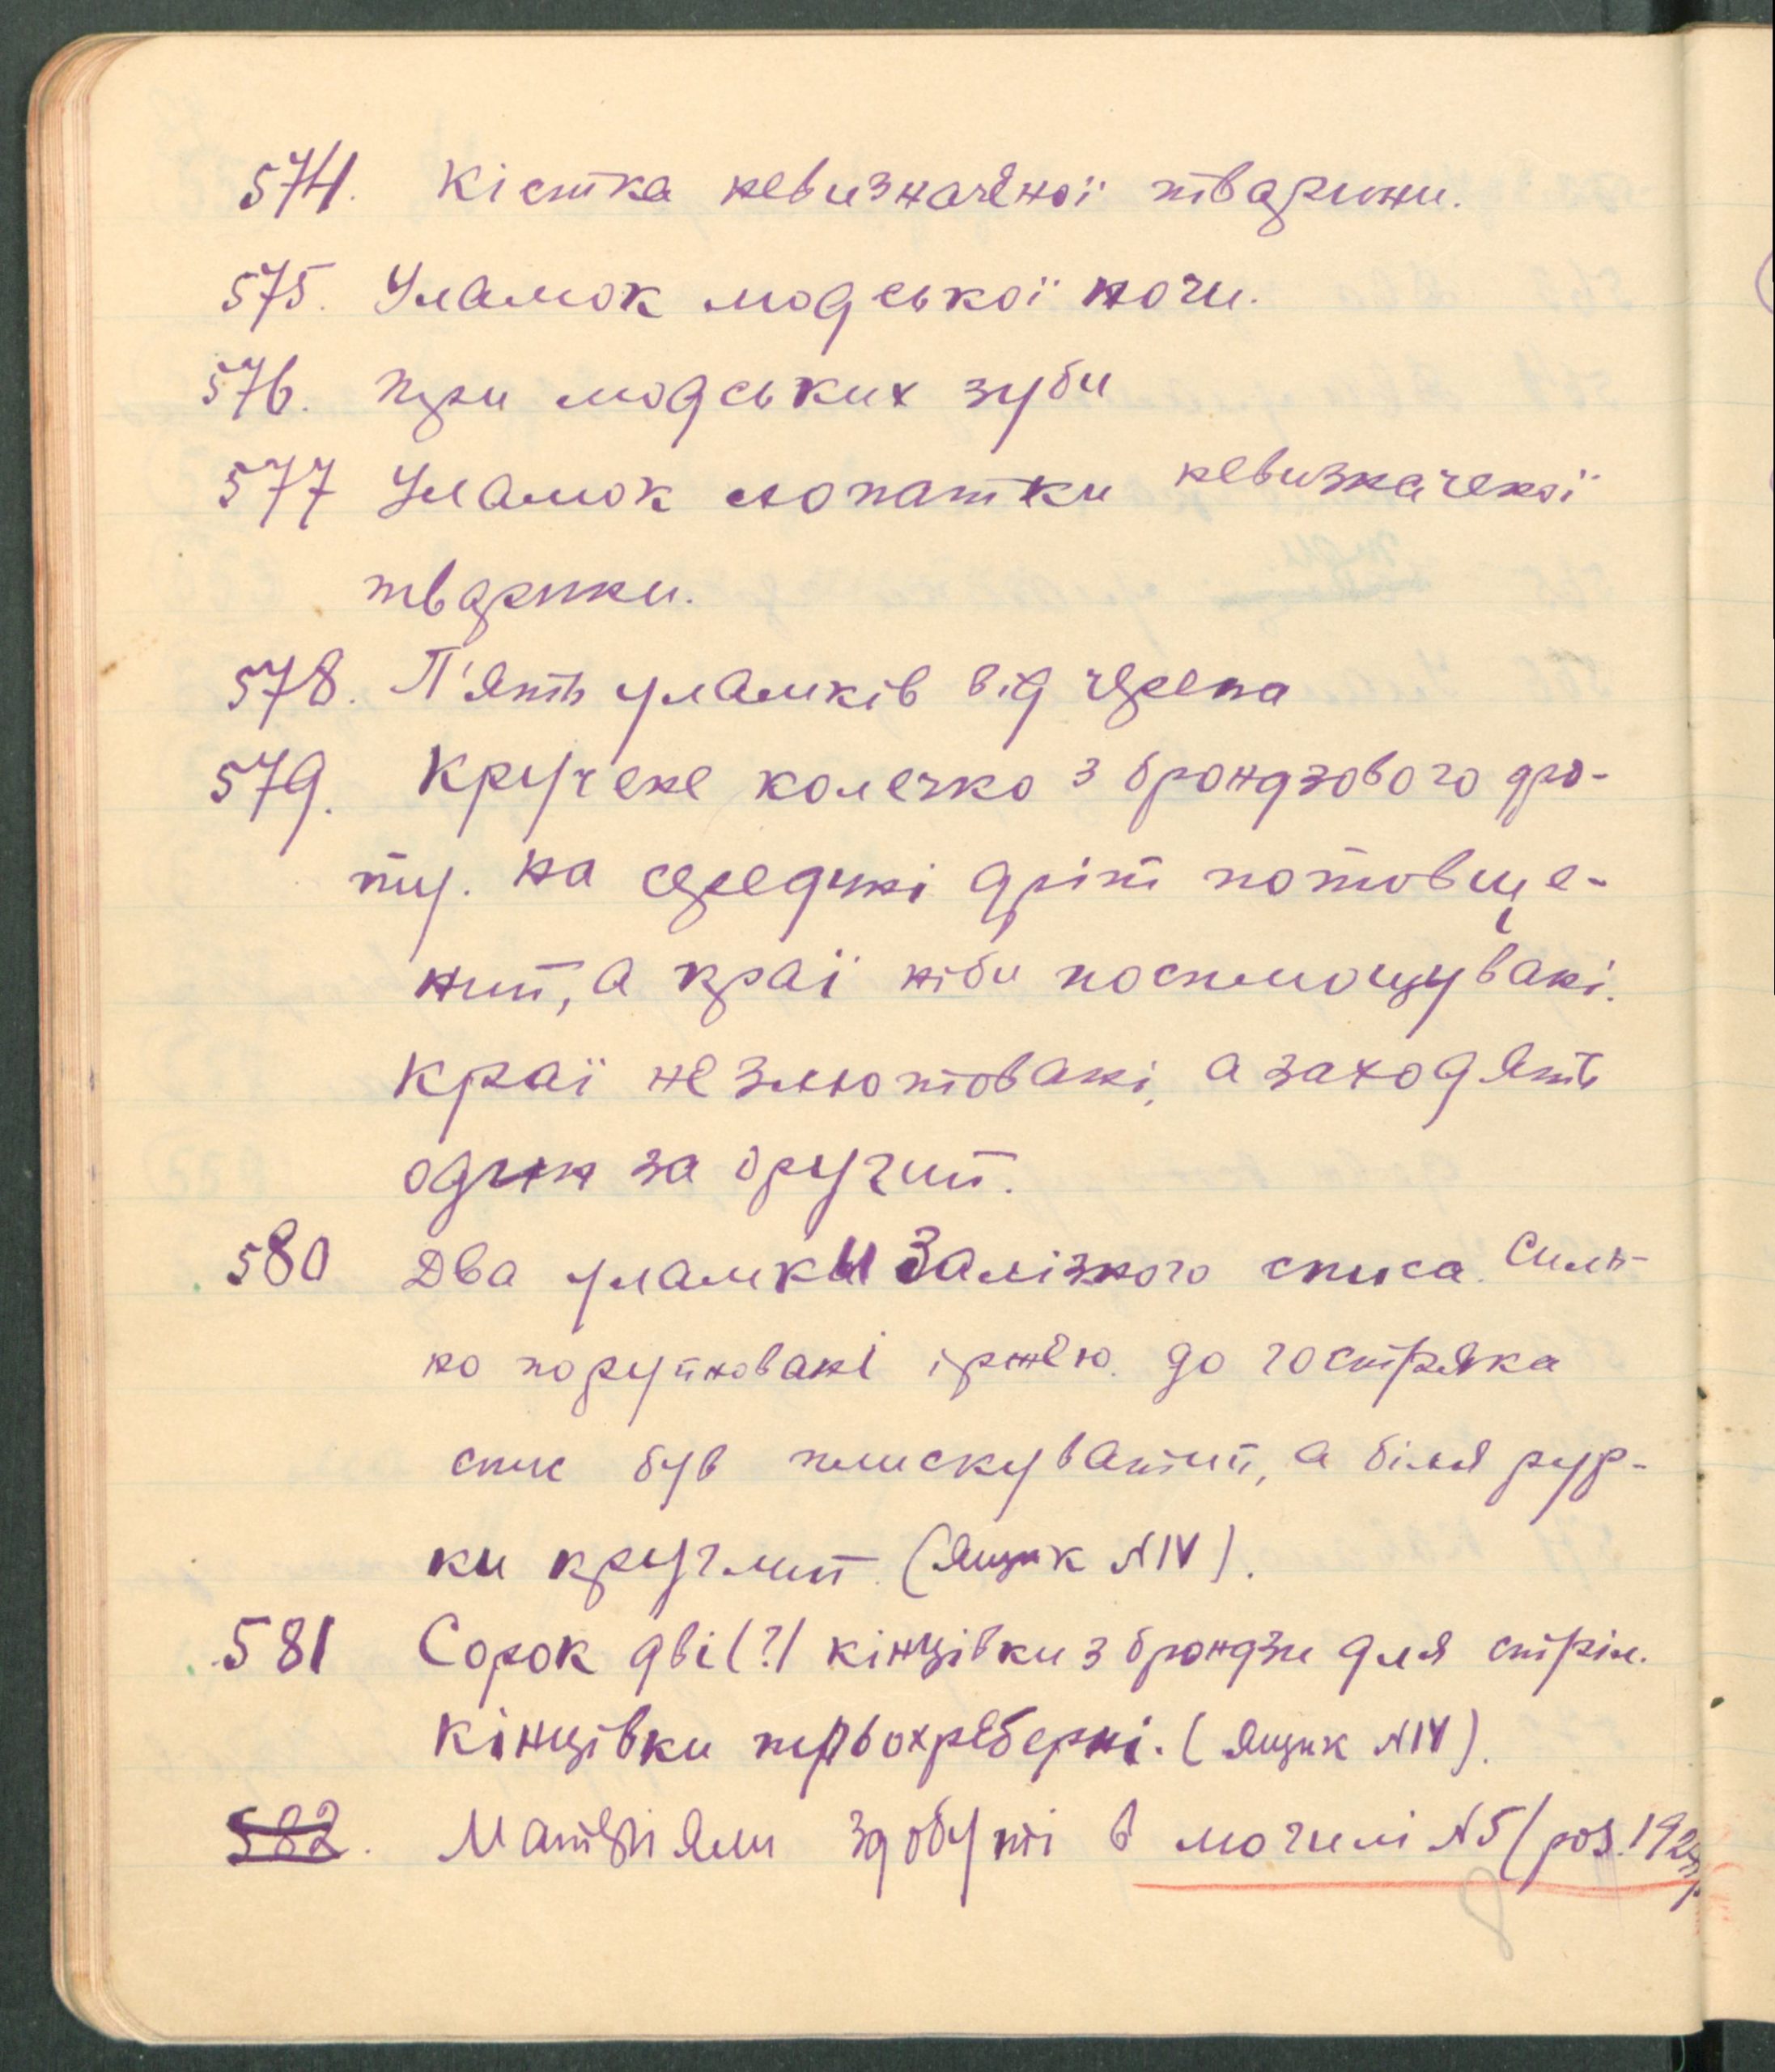 574. Кістка невизначеної тварини.
575. Уламок людської ноги.
576. три людських зуби
577 Уламок лопатки невизначеної
тварини.
578. П'ять уламків від черепа
579. Кручене колечко з брондзового дро-
ту. на середині дріт потовще-
ний, а краї ніби посплющувані.
Краї не злютовані, а заходять
один за другий.
580 Два уламки Залізного списа. Силь-
но поруйновані іржею. до гостряка
спис був плискуватий, а біля рур-
ки круглий. (Ящик №IV).
581 Сорок дві(?) кінцівки з брондзи для стріл.
Кінцівки трьохреберні. (Ящик №IV).
582. Матеріяли здобуті в могилі №5